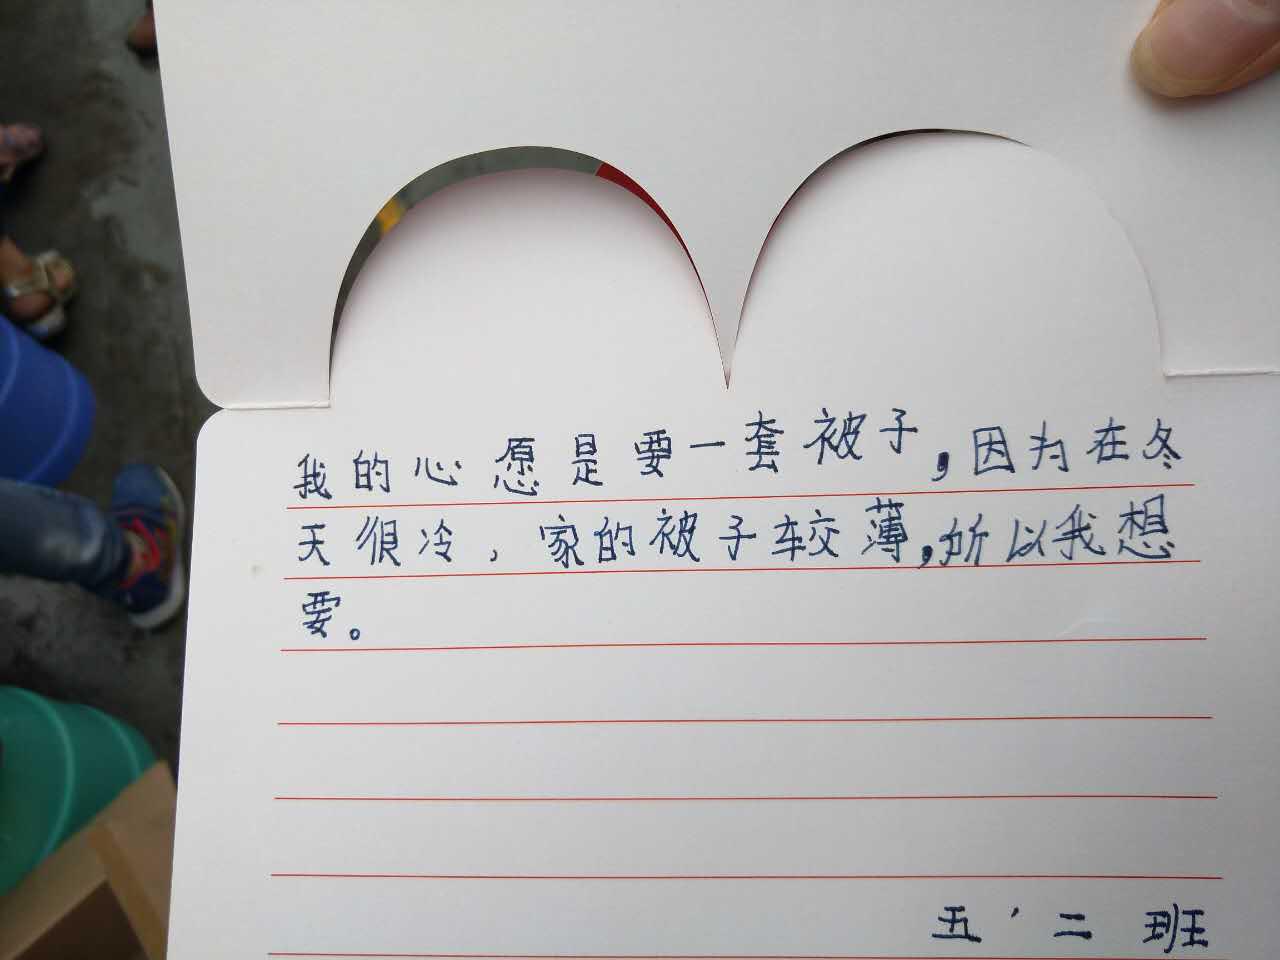 我的心愿是要一套被子，因为在冬
天很冷，家的被子较薄，所以我想
要。
五，二班